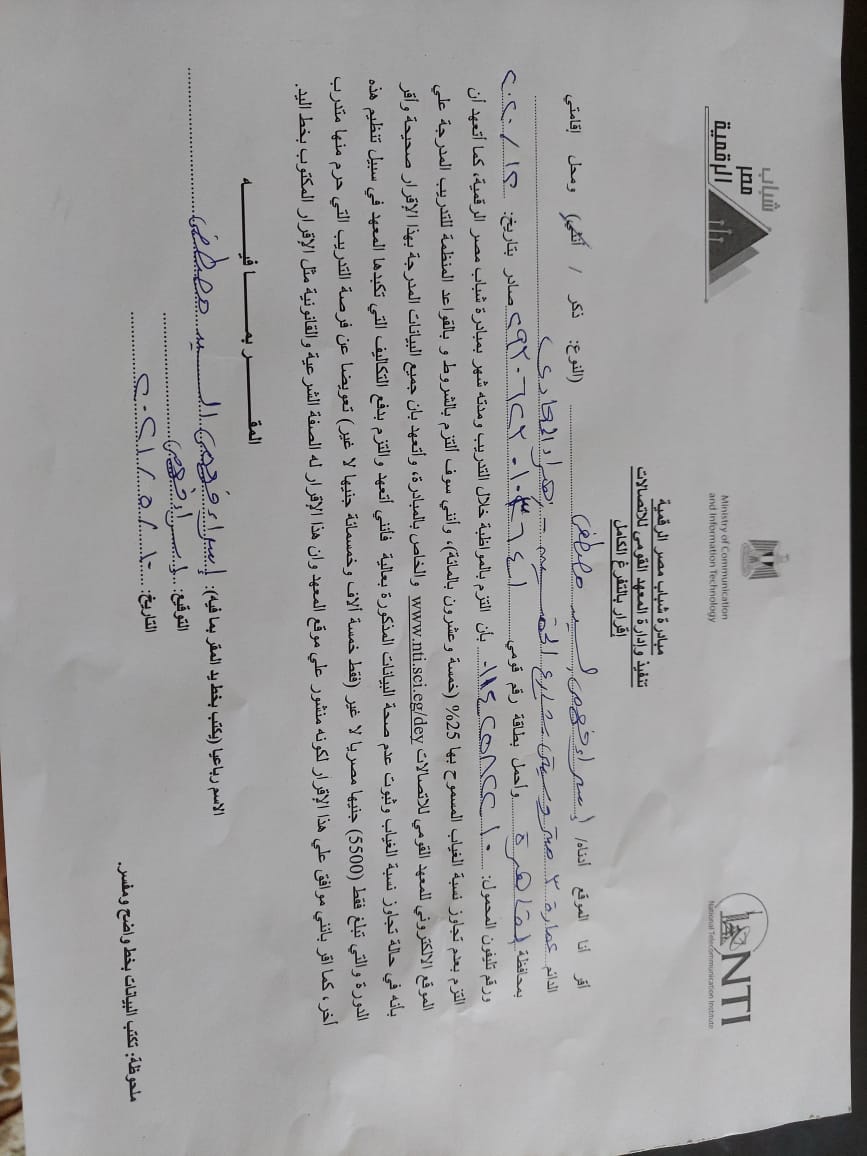 شباب
مصر
الرقمية
Ministry of Communication
and Information Technology
NTI
National Telecommunication Institute
مبادرة شباب مصر الرقمية
تنفيذ وإدارة المعهد القومى للاتصالات
إقرار بالتفرغ الكامل
أقر أنا الموقع أدناه/ إسراء فهمى السيد مصطفى (النوع: ذكر / أنثى) ومحل إقامتي
الدائم عمارة
بمحافظة القاهرة وأحمل بطاقة رقم قومي صادر بتاريخ:
ورقم تليفون المحمول: بأن التزم بالمواظبة خلال التدريب ومدته شهر بمبادرة شباب مصر الرقمية، كما أتعهد أن
التزم بعدم تجاوز نسبة الغياب المسموح بها 25% (خمسة وعشرون بالمائة)، وأنني سوف ألتزم بالشروط و بالقواعد المنظمة للتدريب المدرجة علي
الموقع الالكتروني للمعهد القومي للاتصالات www.nti.sci.eg/dey والخاص بالمبادرة، وأتعهد بان جميع البيانات المدرجة بهذا الإقرار صحيحة وأقر
بأنه في حالة تجاوز نسبة الغياب وثبوت عدم صحة البيانات المذكورة بعالية فأنني أتعهد والتزم بدفع التكاليف التي تكبدها المعهد في سبيل تنظيم هذه
الدورة والتي تبلغ فقط (5500) جنيها مصريا لا غير (فقط خمسة ألاف وخمسمائة جنيها لا غير) تعويضا عن فرصة التدريب التي حرم منها متدرب
أخر، كما اقر بانني موافق علي هذا الإقرار لكونه منشور علي موقع المعهد وان هذا الإقرار له الصفة الشرعية والقانونية مثل الإقرار المكتوب بخط اليد.
المقر بما فيه
الاسم رباعيا (يكتب بخط يد المقر بما فيه): إسراء فهمى السيد مصطفى
التوقيع: إسراء فهمى
التاريخ:
ملحوظة: تكتب البيانات بخط واضح ومفسر.